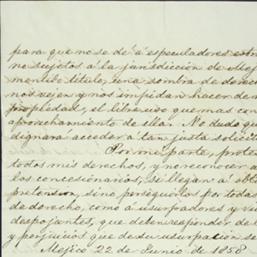 para que no se dé á especuladores estra
no sujetos a la jurisdiccion de Mej
mento título, ni a sombra de derecho
nos vejen y nos impidan hacer de n
propiedad, el libre uso que mas con
aprovechamiento de ella. No dudo que
dignará acceder á tan justa solicit
Por mi parte, protes
todos mis derechos, y no reconocer a
los concesionarios, si llegan á obte
pretension, sino perseguirlos por todas
de derecho, como á usurpadores y
despojantes, que deben responder de
y perjuicios que de su usurpacion se
Mejico 22 de Junio de 1858